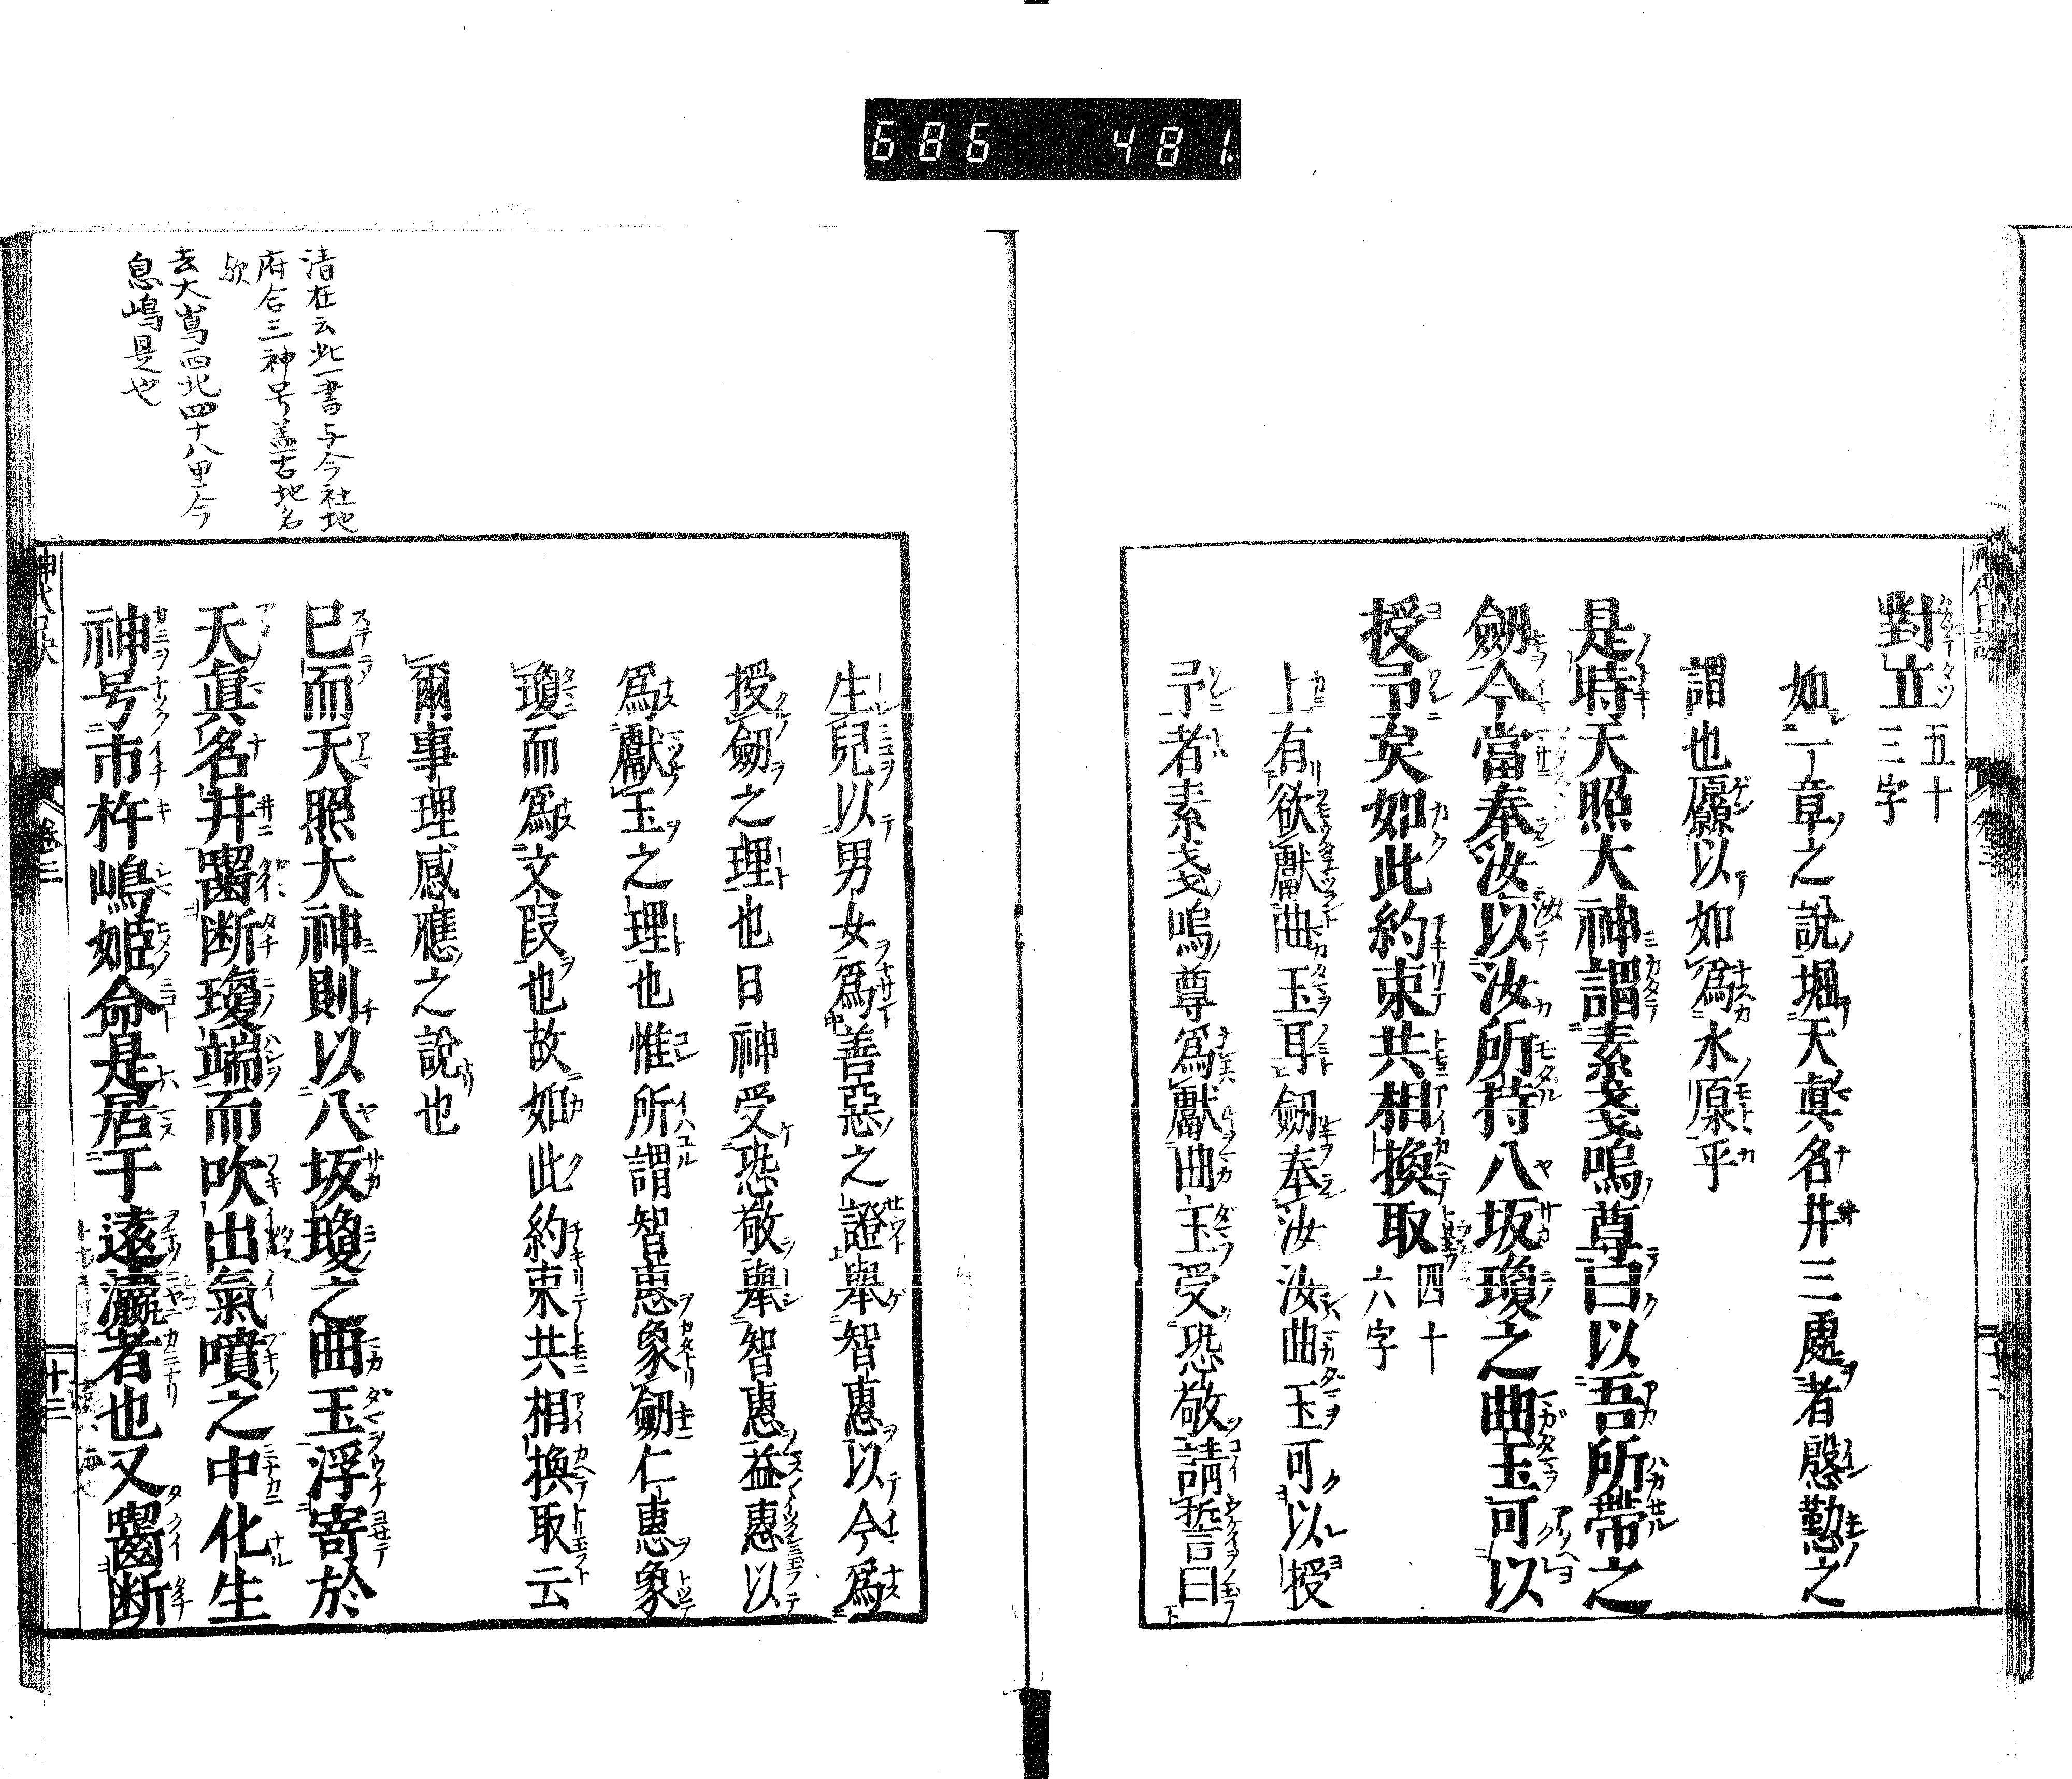 686 481
對立 五十三字
如丁章之說堀天眞名井三處者慇懃之
謂也願以如爲水原乎
是時天照大神謂素戔嗚尊曰以吾所帶之
劔今當奉汝以汝所持八坂瓊之曲玉可以
授予矣如此約束共相換取 四十六字
上有欲獻曲玉耳劔奉汝汝曲玉可以授
予者素戔嗚尊爲獻曲玉受恐敬請誓曰
生兒以男女爲善惡之證舉智惠以今爲
授劔之理也日神受恐敬舉智惠益惠以
爲獻玉之理也惟所謂智惠象劔仁惠象
瓊而爲文段也故如此約束共相換取云
爾事理感應之說也
已而天照大神則以八坂瓊之曲玉浮寄於
天眞名井囓断瓊端而吹出氣噴之中化生
神号市杵嶋姬命是居于遠瀛者也又囓断
清在云此一書与今社地
府合三神号盖古地名
欤
去大嶌西北四十八里今
息嶋是也
神代口訣
卷三
十三